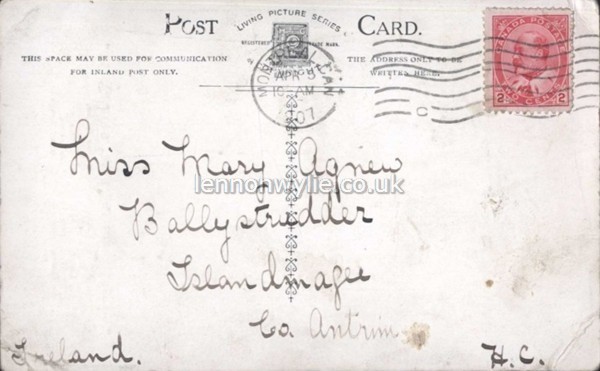 POST CARD.
LIVING PICTURE SERIES
REGISTERED TRADE MARK.
THIS SPACE MAY BE USED FOR COMMUNICATION
FOR INLAND POST ONLY.
THE ADDRESS ONLY TO BE
WRITTEN HERE.
CAN
APR 5
10 AM
07
CANADA POSTAGE
2 CENTS 2
Miss Mary Agnew
lennonwylie.co.uk
Ballystrudder
Islandmagee
Co. Antrim
Ireland.
H.C.